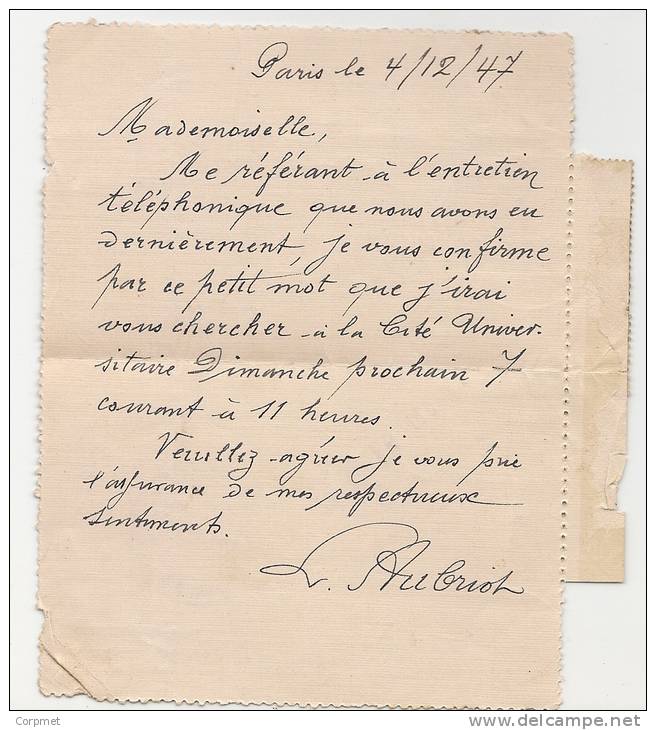 Paris le 4/12/47
Mademoiselle,
Me référant à l'entretien
téléphonique que nous avons eu
dernièrement, je vous confirme
par ce petit mot que j'irai
vous chercher à la Cité Univer-
sitaire Dimanche prochain 7
courant à 11 heures.
Veuillez agréer je vous prie
l'assurance de mes respectueux
sentiments.
L. Aubriot
Corpmet
www.delcampe.net